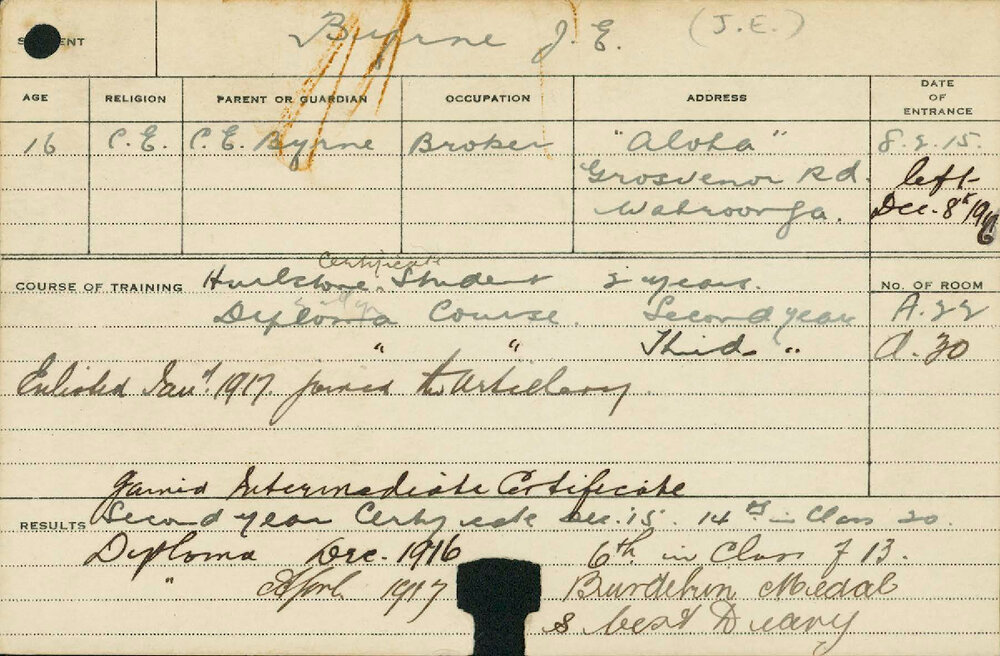 STUDENT Byrne J. E. (J. E.)
AGE RELIGION PARENT OR GUARDIAN OCCUPATION ADDRESS DATE OF ENTRANCE
16 C.E. C.E. Byrne Broker "Aloha" 8.2.15.
Grosvenor Rd. left
Wahroonga. Dec. 8th 1916
Certificate
COURSE OF TRAINING Hurlstone Student 2 years. No. OF ROOM
Diploma Course. Second year A.22
" " Third " A.30
Enlisted Jany 1917. joined the Artillery.
Gained Intermediate Certificate
RESULTS Second year Certificate Dec. '15 14th in Class 20.
Diploma Dec. 1916 6th in Class of 13.
" April 1917 Burdekin Medal
& best Diary